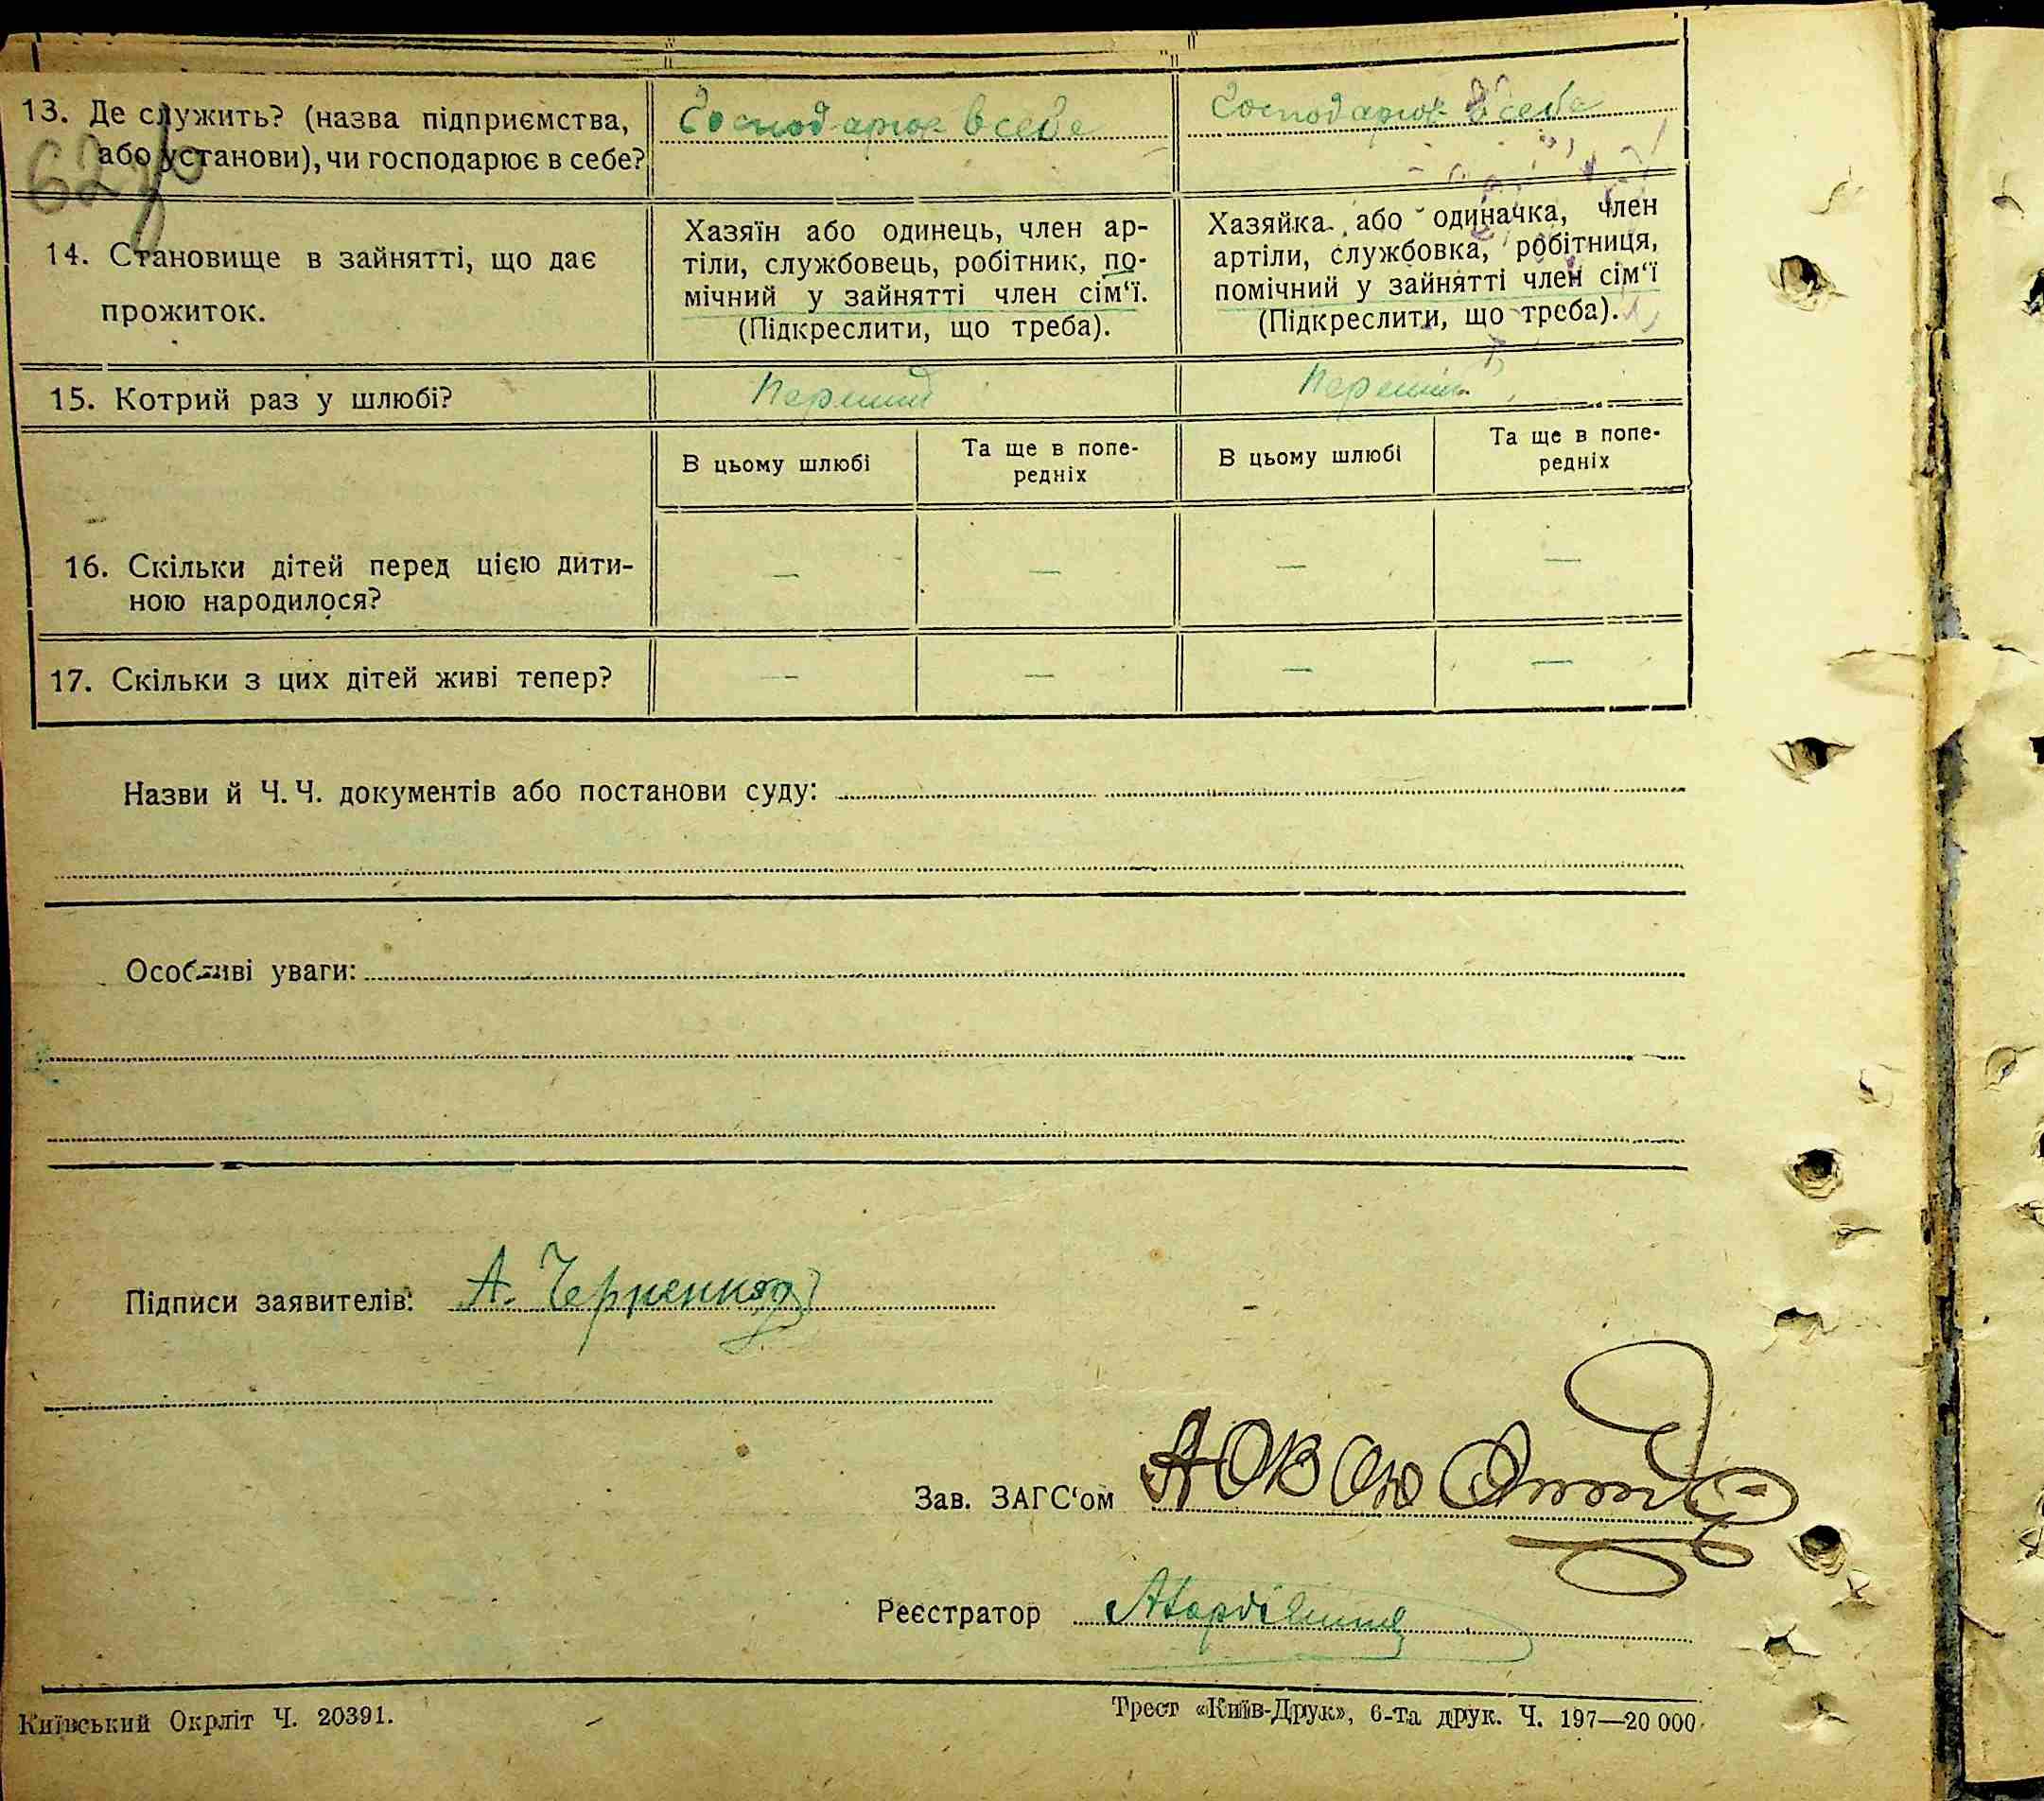 13. Де служить? (назва підприємства, або установи), чи господарює в себе?
Господарює в себе
Господарює в себе
62
14. Становище в зайнятті, що дає прожиток.
Хазяїн або одинець, член ар-
тіли, службовець, робітник, по-
мічний у зайнятті член сім‘ї.
(Підкреслити, що треба).
Хазяйка або одиначка, член
артіли, службовка, робітниця,
помічний у зайнятті член сім‘ї
(Підкреслити, що треба).
15. Котрий раз у шлюбі?
Перший
Перший
В цьому шлюбі
Та ще в попе-
редніх
В цьому шлюбі
Та ще в попе-
редніх
16. Скільки дітей перед цією дити-
ною народилося?
— — — —
17. Скільки з цих дітей живі тепер?
— — — —
Назви й Ч. Ч. документів або постанови суду:
Особливі уваги:
Підписи заявителів: А.
Зав. ЗАГС‘ом
Реєстратор
Київський Окрліт Ч. 20391.
Трест «Київ-Друк», 6-та друк. Ч. 197—20 000